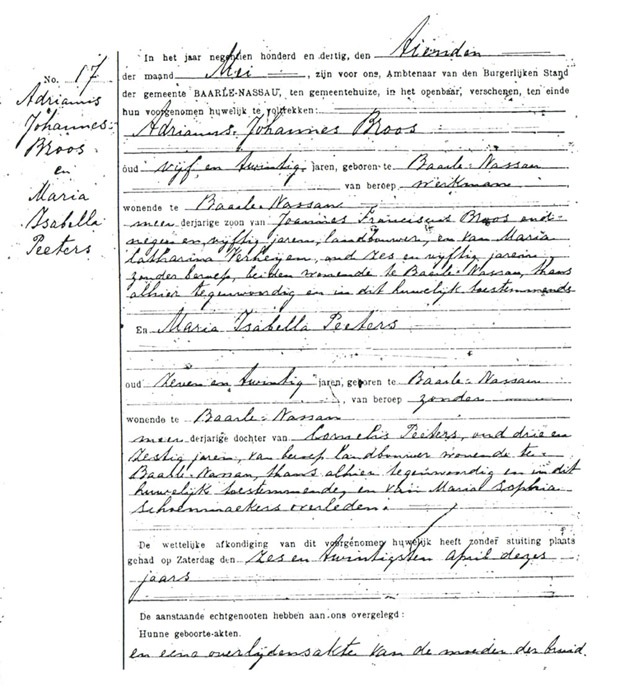 No. 17
Adrianus
Johannes
Broos
en
Maria
Isabella
Peeters
In het jaar negentien honderd en dertig, den
der maand Mei, zijn voor ons, Ambtenaar van den Burgerlijken Stand
der gemeente BAARLE-NASSAU, ten gemeentehuize, in het openbaar, verschenen, ten einde
hun voorgenomen huwelijk te voltrekken:
Adrianus Johannes Broos
oud vijf en twintig jaren, geboren te Baarle-Nassau
van beroep werkman
wonende te Baarle-Nassau
meer derjarige zoon van Joannes Franciscus Broos oud
negen en vijftig jaren, landbouwer, en van Maria
Catharina Verheijen, oud zes en vijftig jaren,
zonder beroep, beiden wonende te Baarle-Nassau, thans
alhier tegenwoordig en in dit huwelijk toestemmende
En Maria Isabella Peeters
oud zeven en twintig jaren, geboren te Baarle-Nassau
, van beroep zonder
wonende te Baarle-Nassau
meer derjarige dochter van Cornelis Peeters, oud drie en
zestig jaren, van beroep landbouwer wonende te
Baarle-Nassau, thans alhier tegenwoordig en in dit
huwelijk toestemmende, en van Maria Sophia
Schoenmaekers overleden.
De wettelijke afkondiging van dit voorgenomen huwelijk heeft zonder stuiting plaats
gehad op Zaterdag den zes en twintigsten April dezes
jaars
De aanstaande echtgenooten hebben aan ons overgelegd:
Hunne geboorte-akten.
en eene overlijdensakte van de moeder der bruid.